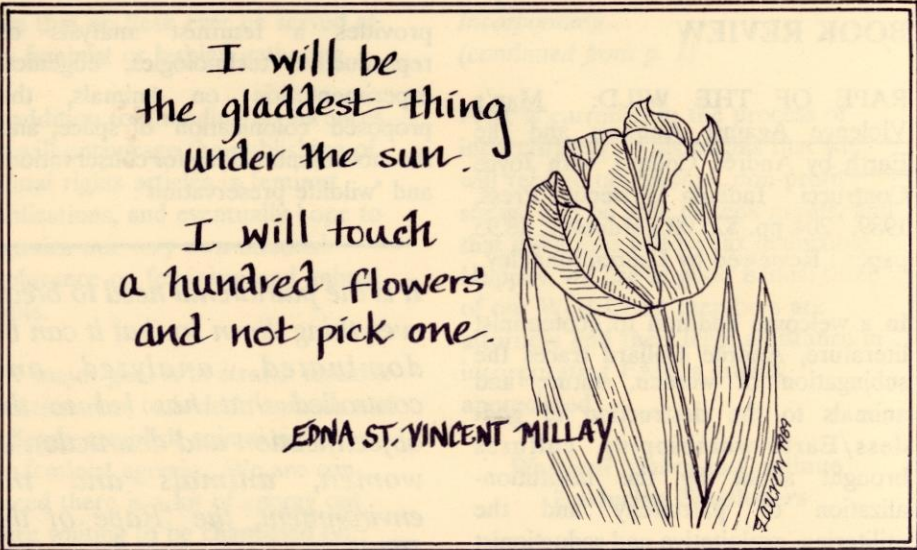 I will be
the gladdest thing
under the sun.
I will touch
a hundred flowers
and not pick one.
EDNA ST. VINCENT MILLAY